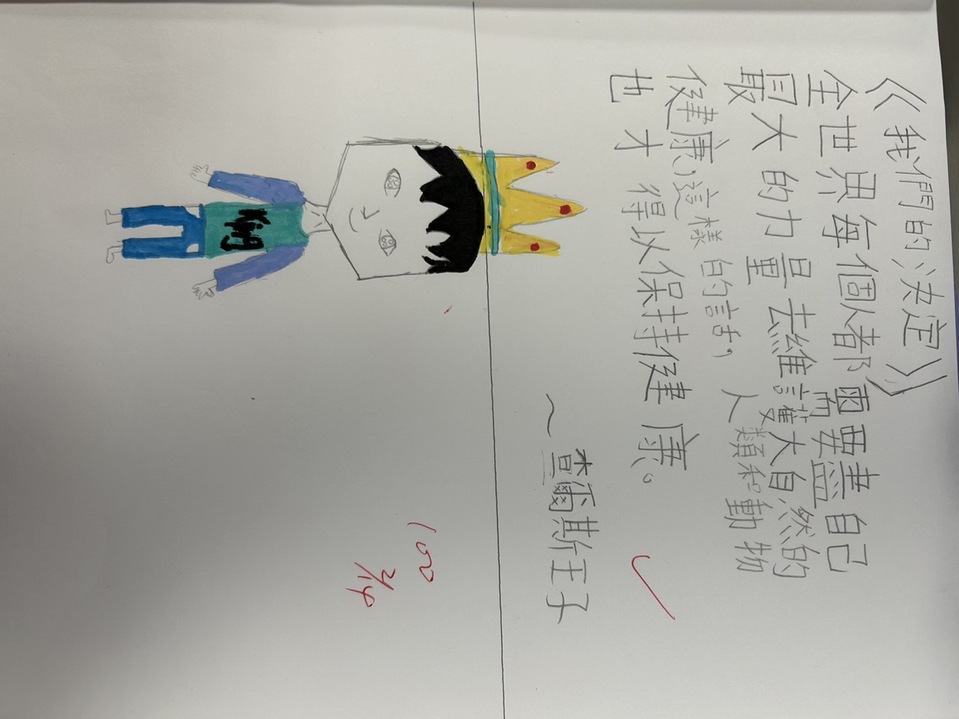 《我們的決定》
全世界每個人都需要盡自己
最大的力量去維護大自然的
健康，這樣的話，人類和動物
也才得以保持健康。
～查爾斯王子
King
100
2/14